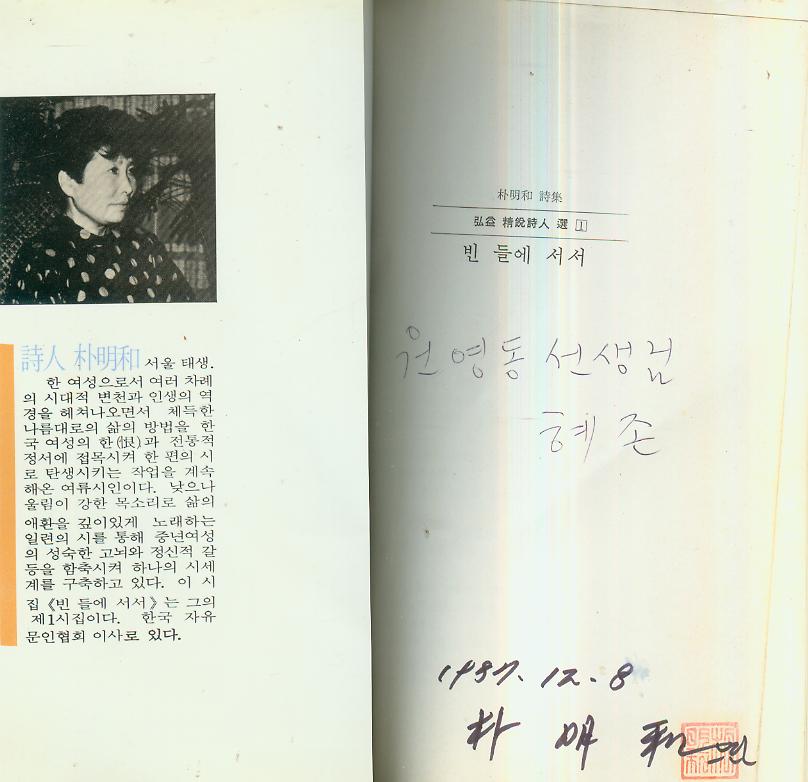 詩人 朴明和 서울 태생.
한 여성으로서 여러 차례
의 시대적 변천과 인생의 역
경을 헤쳐나오면서 체득한
나름대로의 삶의 방법을 한
국 여성의 한(恨)과 전통적
정서에 접목시켜 한 편의 시
로 탄생시키는 작업을 계속
해온 여류시인이다. 낮으나
울림이 강한 목소리로 삶의
애환을 깊이있게 노래하는
일련의 시를 통해 중년여성
의 성숙한 고뇌와 정신적 갈
등을 함축시켜 하나의 시세
계를 구축하고 있다. 이 시
집 《빈 들에 서서》는 그의
제1시집이다. 한국 자유
문인협회 이사로 있다.
朴明和 詩集
弘益 精銳詩人 選 1
빈 들에 서서
원영동 선생님
혜존
1987. 12. 8
朴 明 和